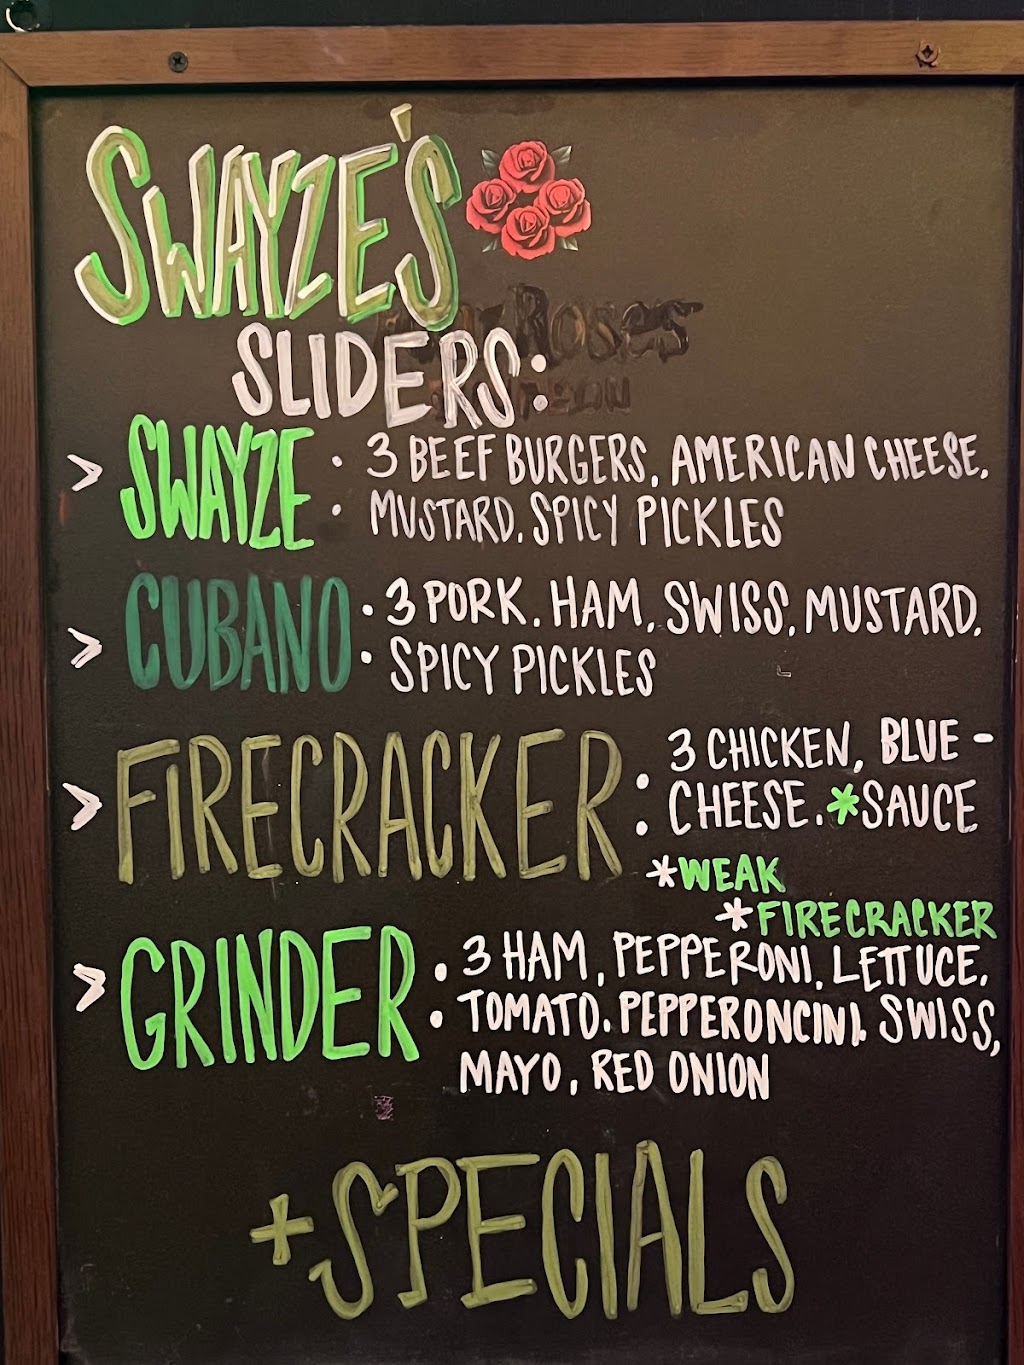 SWAYZE'S
Roses
SLIDERS:
> SWAYZE : 3 BEEF BURGERS, AMERICAN CHEESE,
MUSTARD, SPICY PICKLES
> CUBANO : 3 PORK, HAM, SWISS, MUSTARD,
SPICY PICKLES
> FIRECRACKER : 3 CHICKEN, BLUE-
CHEESE, *SAUCE
*WEAK
*FIRECRACKER
> GRINDER : 3 HAM, PEPPERONI, LETTUCE,
TOMATO, PEPPERONCINI, SWISS,
MAYO, RED ONION
+SPECIALS